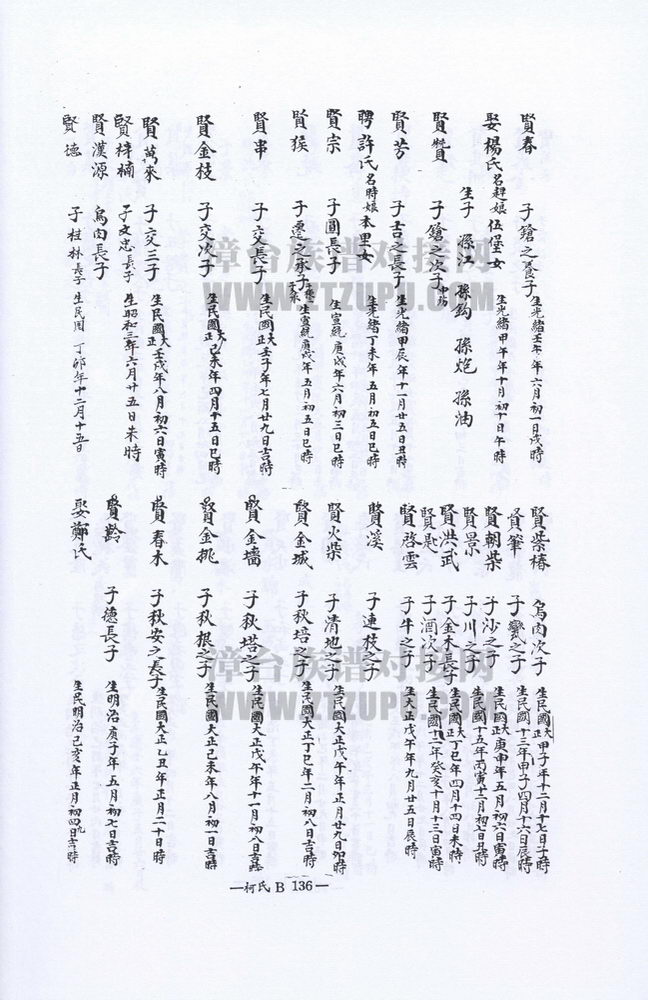 賢春 子鎗之養子 生光緒壬午年六月初一日戌時
娶楊氏名 娘伍堡女 生光緒甲午年十月初十日午時
生子 孫江 孫鈎 孫炮 孫油
賢贊 子鎗之次子
賢芳 子吉之長子 生光緒甲辰年十一月廿五日丑時
聘許氏名時娘本里女 生光緒丁未年五月初五日巳時
賢宗 子圓長子 生宣統庚戌年六月初三日巳時
賢猴 子 之承子 生宣統庚戌年五月初五日巳時
賢串 子交長子 生民國大正壬子年七月廿九日吉時
賢金枝 子交次子 生民國大正己未年四月十五日巳時
賢萬來 子交三子 生民國大正壬戌年八月初六日寅時
賢梓楠 子文忠長子 生昭和三年六月廿五日未時
賢漢源 烏肉長子
賢德 子桂林長子 生民國丁卯年十二月十五日
賢柴椿 烏肉次子 生民國大正甲子年十二月十七日子時
賢筆 子 之子 生民國十三年甲子四月十六日辰時
賢朝柴 子沙之子 生民國大正庚申年五月初六日寅時
賢景 子川之子 生民國十五年丙寅十二月初七日丑時
賢洪武 子金木長子 生民國大正丁巳年四月十四日未時
賢匙 子酒次子 生民國十二年癸亥十月十三日寅時
賢啓雲 子牛之子 生大正戊午年九月廿五日辰時
賢溪 子連枝之子
賢火柴 子清地之子 生民國大正戊午年正月廿九日卯時
賢金城 子秋培之子 生民國大正丁巳年二月初八日吉時
賢金墻 子秋塔之子 生民國大正戊午年十一月初八日吉時
賢金挑 子秋根之子 生民國大正己未年八月初一日吉時
賢春木 子秋安之長子 生民國大正乙丑年正月二十日時
賢齡 子德長子 生明治庚子年五月初七日吉時
娶鄭氏 生民明治己亥年正月初四日吉時
—柯氏 B 136—
漳台族谱对接网
WWW.ZTZUPU.COM
漳台族谱对接网
WWW.ZTZUPU.COM